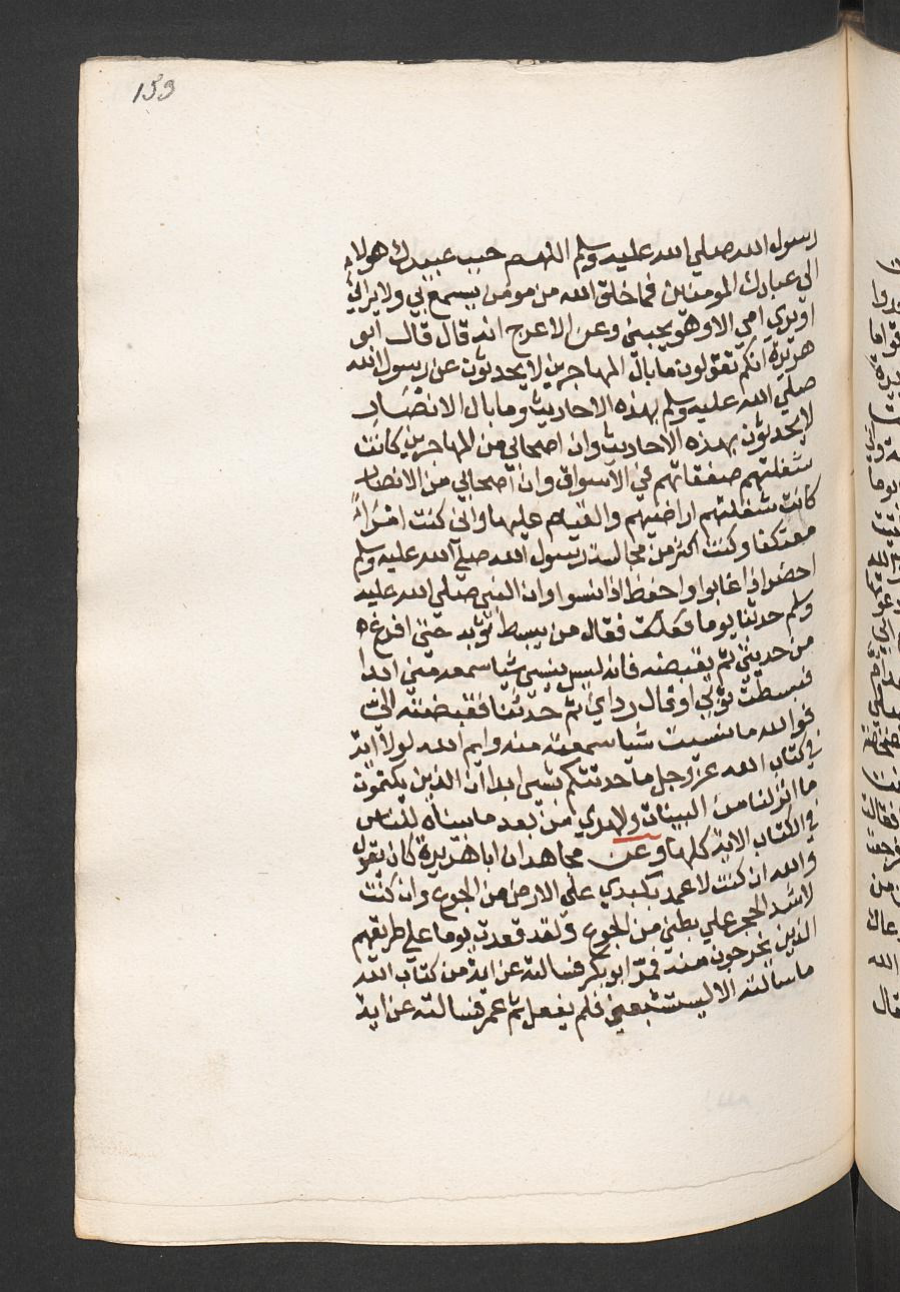 159
رسول الله صلي الله عليه وسلم اللهم حبب عبيدك هولاء
الي عبادك المومنين فما خلق الله من مومن يسمع بي ولا يراني
او يري امي الا وهو يحبني وعن الاعرج انه قال قال ابو
هريرة انكم تقولون ما بال المهاجرين لا يحدثون عن رسول الله
صلي الله عليه وسلم بهذه الاحاديث وما بال الانصار
لا يحدثون بهذه الاحاديث وان اصحابي من المهاجرين كانت
شغلتهم صفقاتهم في الاسواق وان اصحابي من الانصار
كانت شغلتهم اراضيهم والقيام عليها واني كنت امراً
معتكفا وكنت اكثر من مجالسة رسول الله صلي الله عليه وسلم
احضر اذا غابوا واحفظ اذا نسوا وان النبي صلي الله عليه
وسلم حدثنا يوما فقال من يبسط ثوبه حتي افرغ
من حديثي ثم يقبضه فانه ليس ينسي شيا سمعه مني ابدا
فبسطت ثوبي او قال رداي ثم حدثنا فقبضته الي
فوالله ما نسيت شيا سمعته منه وايم الله لولا اية
في كتاب الله عز وجل ما حدثتكم بشي ابدا ان الذين يكتمون
ما انزلنا من البينات ولهدي من بعد ما بيناه للناس
في الكتاب الاية كلها وعن مجاهد ان ابا هريرة كان يقول
والله ان كنت لاعمد بكبدي علي الارض من الجوع وان كنت
لاشد الحجر علي بطني من الجوع ولقد قعدت يوما علي طريقهم
الذين يخرجون منه فمر ابو بكر فسالته عن اية من كتاب الله
ما سالته الا ليستتبعني فلم يفعل ثم عمر فسالته عن اية